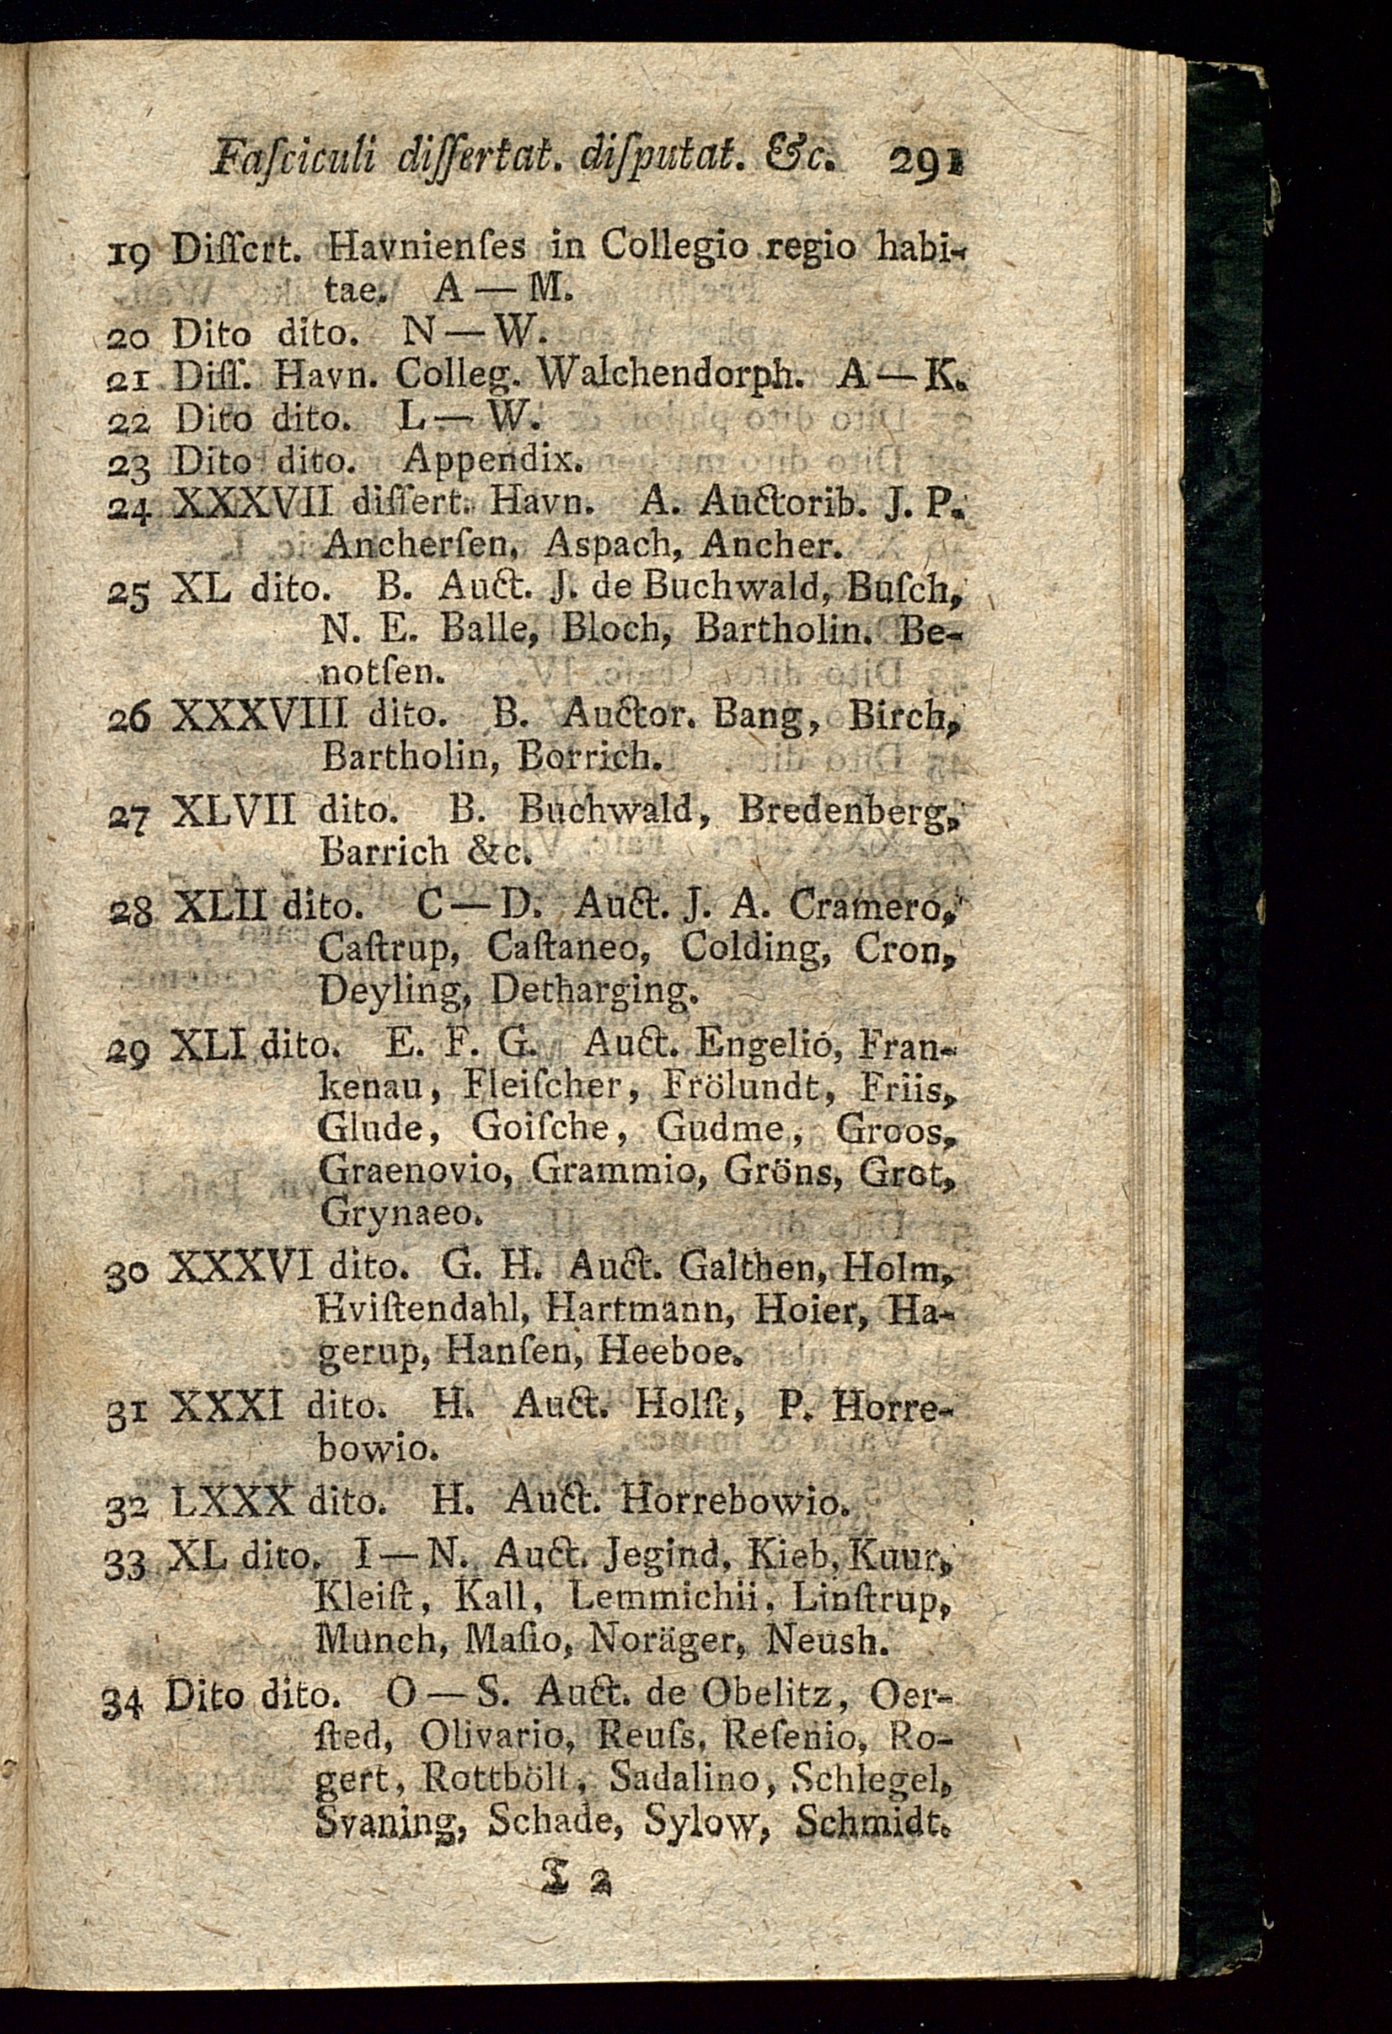 Faſciculi diſſertat. diſputat. &c. 291
19 Diſſert. Havnienſes in Collegio regio habi-
tae. A — M.
20 Dito dito. N — W.
21 Diſſ. Havn. Colleg. Walchendorph. A — K.
22 Dito dito. L — W.
23 Dito dito. Appendix.
24 XXXVII diſſert. Havn. A. Auctorib. J. P.
Ancherſen, Aspach, Ancher.
25 XL dito. B. Auct. J. de Buchwald, Buſch,
N. E. Balle, Bloch, Bartholin. Be-
notſen.
26 XXXVIII dito. B. Auctor. Bang, Birch,
Bartholin, Borrich.
27 XLVII dito. B. Buchwald, Bredenberg,
Barrich &c.
28 XLII dito. C — D. Auct. J. A. Cramero,
Caſtrup, Caſtaneo, Colding, Cron,
Deyling, Detharging.
29 XLI dito. E. F. G. Auct. Engelio, Fran-
kenau, Fleiſcher, Frölundt, Friis,
Glude, Goiſche, Gudme, Groos,
Graenovio, Grammio, Gröns, Grot,
Grynaeo.
30 XXXVI dito. G. H. Auct. Galthen, Holm,
Hviſtendahl, Hartmann, Hoier, Ha-
gerup, Hanſen, Heeboe.
31 XXXI dito. H. Auct. Holſt, P. Horre-
bowio.
32 LXXX dito. H. Auct. Horrebowio.
33 XL dito. I — N. Auct. Jegind, Kieb, Kuur,
Kleiſt, Kall, Lemmichii, Linſtrup,
Munch, Maſio, Noräger, Neush.
34 Dito dito. O — S. Auct. de Obelitz, Oer-
ſted, Olivario, Reuſs, Reſenio, Ro-
gert, Rottböll, Sadalino, Schlegel,
Svaning, Schade, Sylow, Schmidt.
T 2